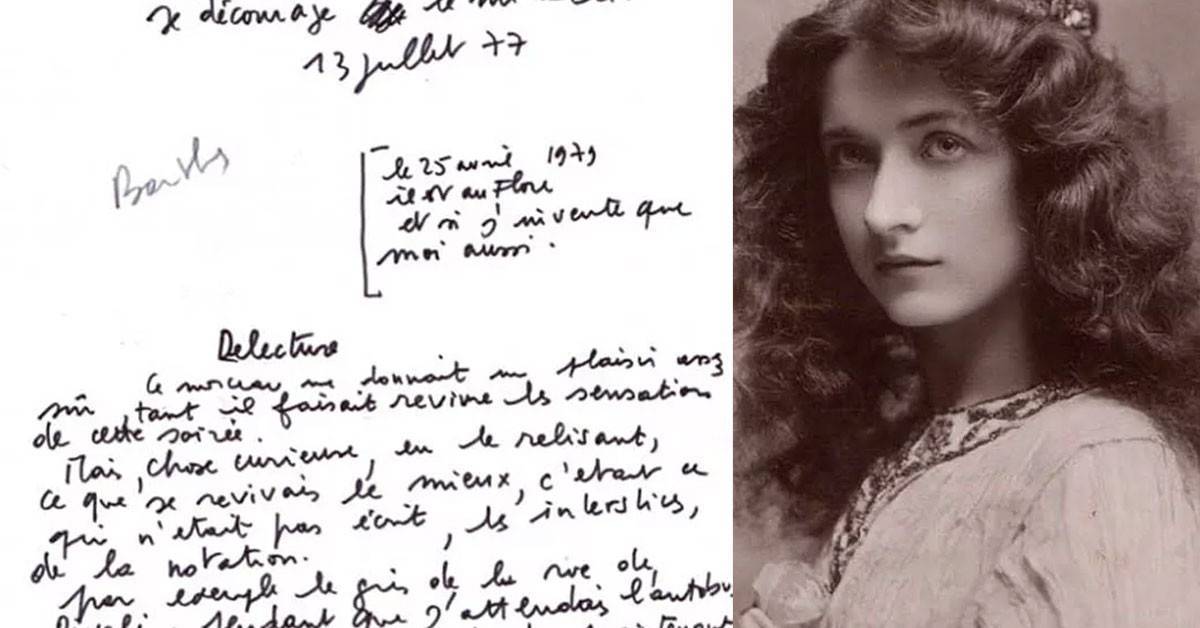 je décourage
13 juillet 77
Barths
le 25 avril 1979
il est au Flore
et si j'invente que
moi aussi.
Relecture
Ce morceau me donnait un plaisir assez
sûr, tant il faisait revivre les sensations
de cette soirée.
Mais, chose curieuse, en le relisant,
ce que je revivais le mieux, c'était ce
qui n'était pas écrit, les interstices,
de la notation.
par exemple le gris de la rue de
pendant que j'attendais l'autobu